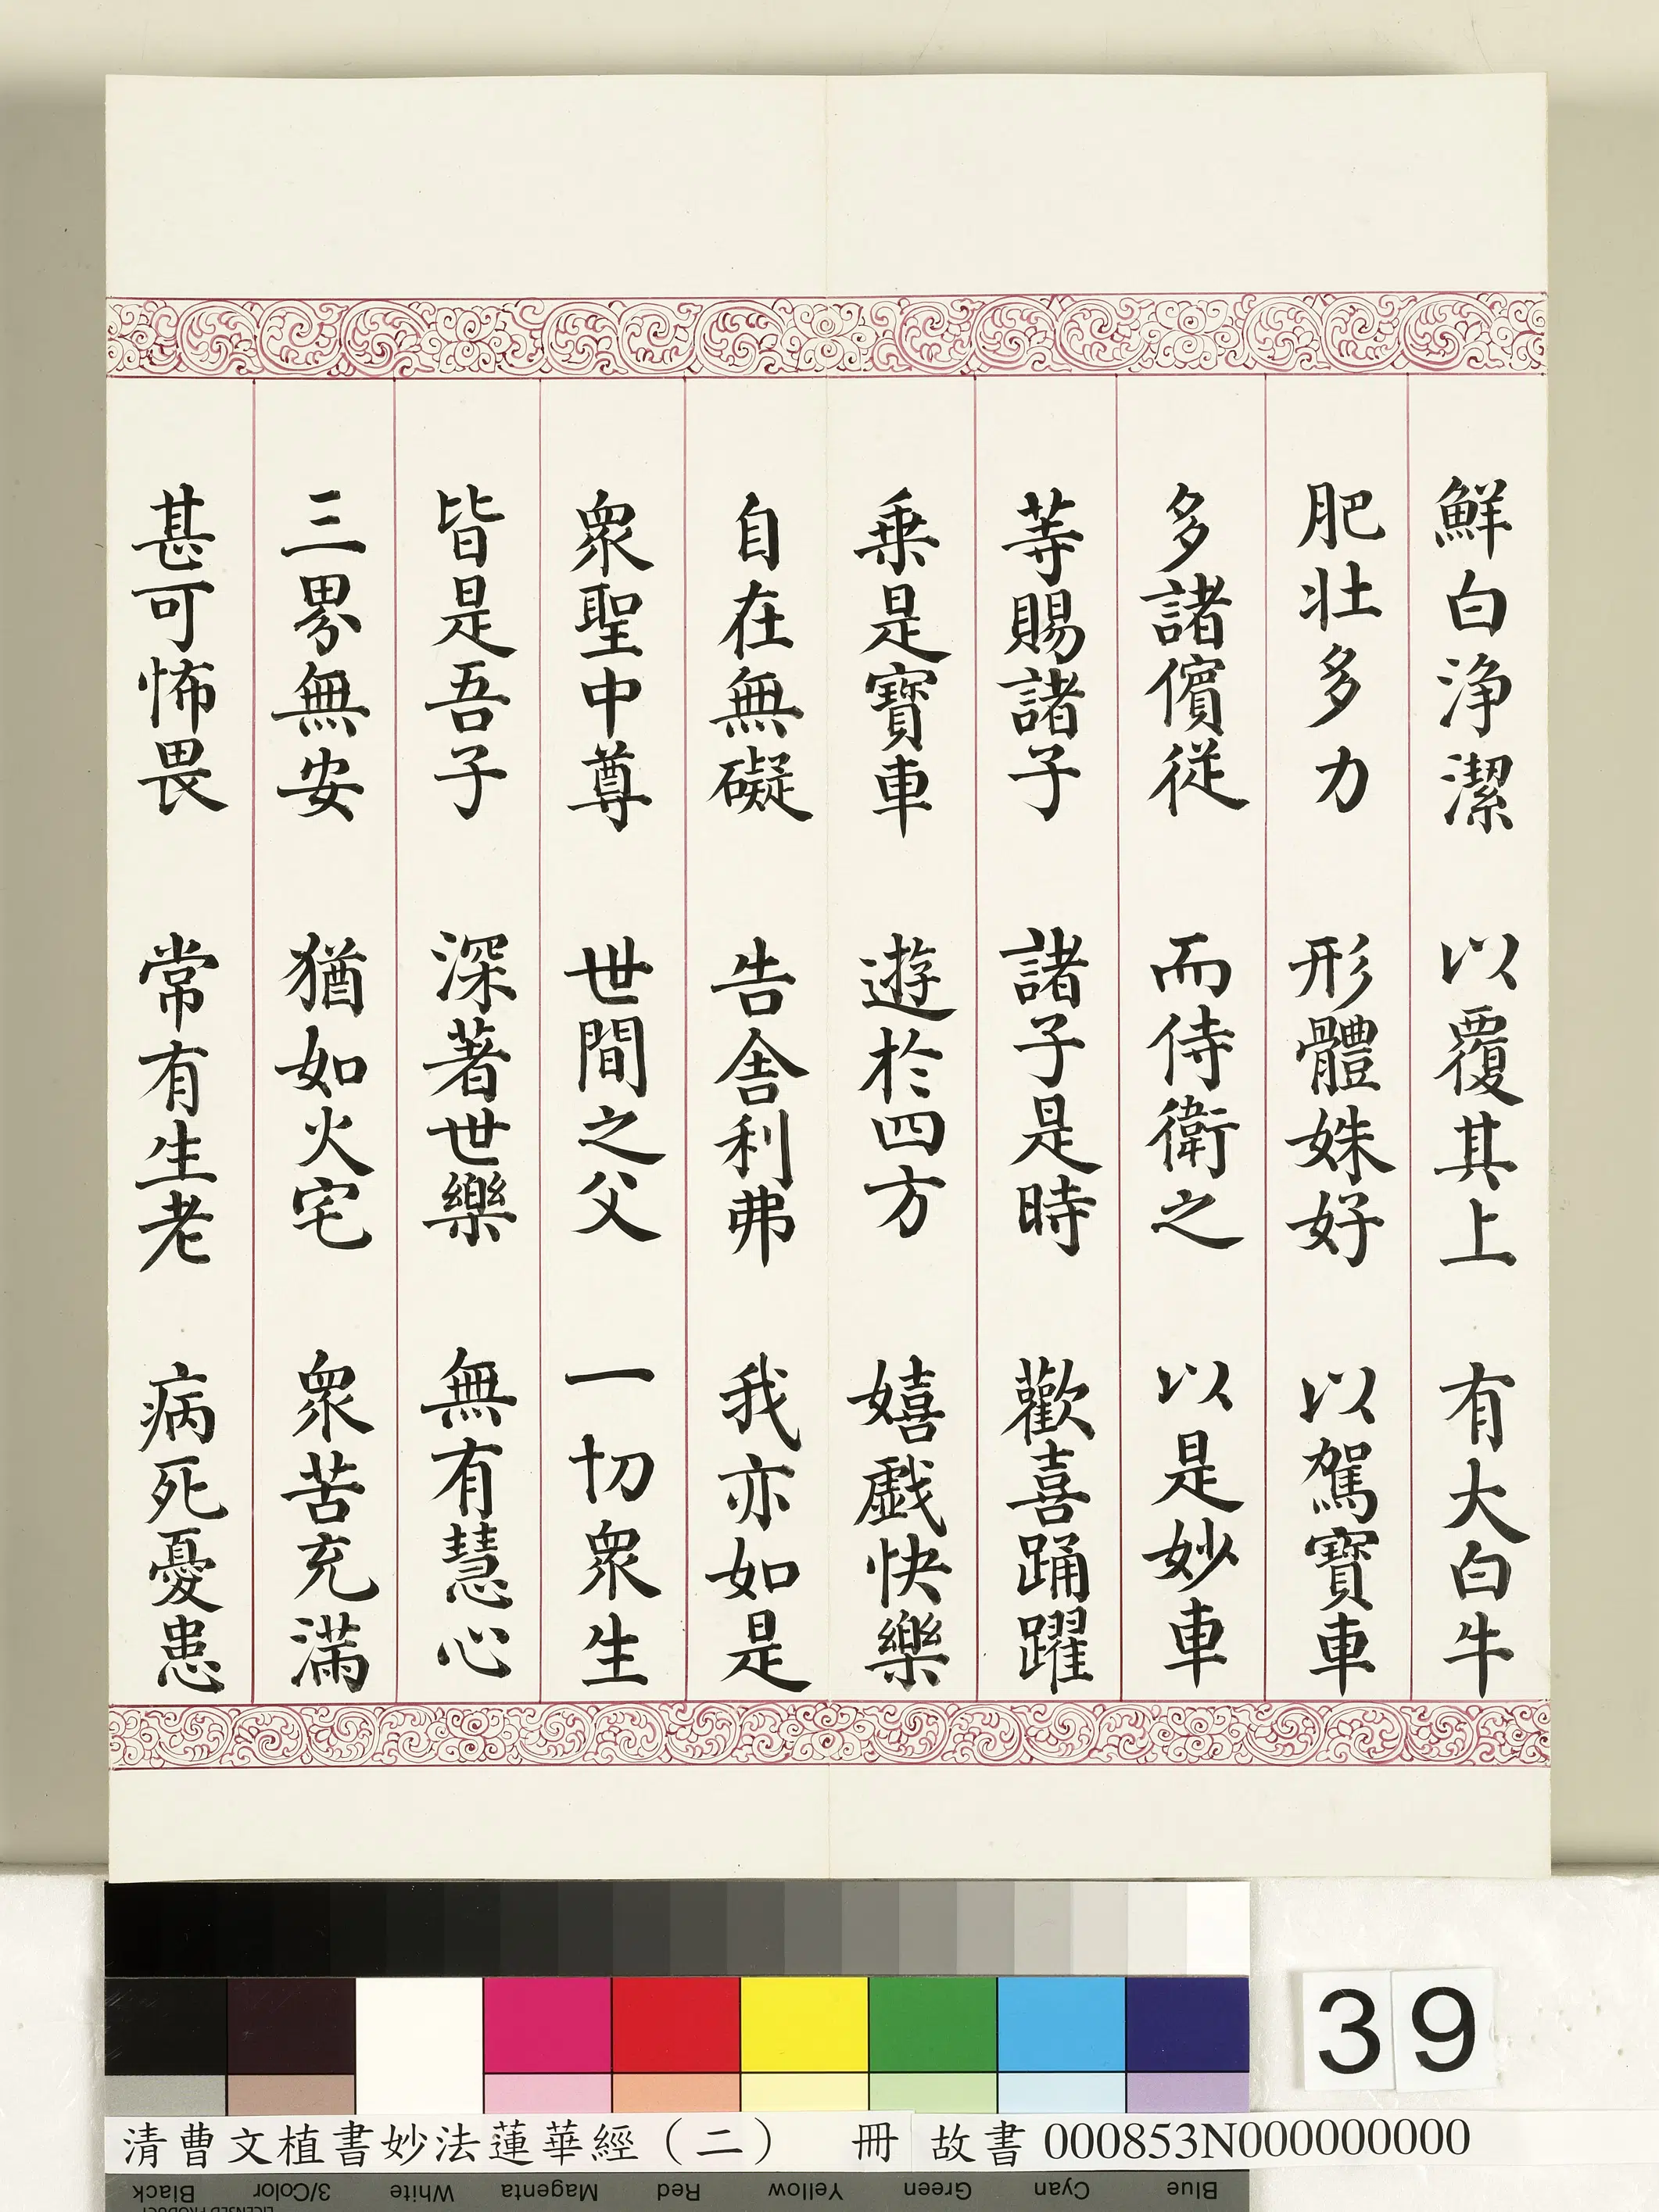 鮮白淨潔　以覆其上　有大白牛
肥壯多力　形體姝好　以駕寶車
多諸儐從　而侍衛之　以是妙車
等賜諸子　諸子是時　歡喜踊躍
乘是寶車　遊於四方　嬉戲快樂
自在無礙　告舍利弗　我亦如是
衆聖中尊　世間之父　一切衆生
皆是吾子　深著世樂　無有慧心
三界無安　猶如火宅　衆苦充滿
甚可怖畏　常有生老　病死憂患
39
清曹文植書妙法蓮華經（二）　冊　故書 000853N000000000
Blue Cyan Green Yellow Red Magenta White 3/Color Black
LICENSED PRODUCT